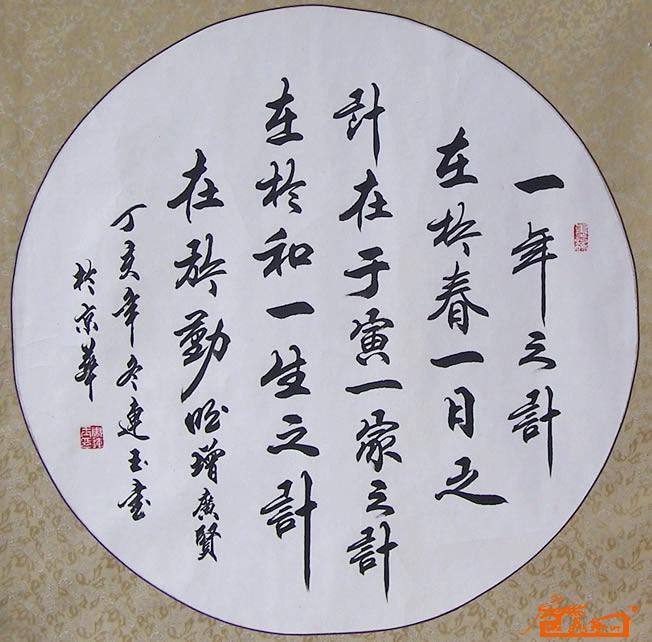 一年之計
在於春一日之
計在于寅一家之計
在於和一生之計
在於勤 增廣賢
丁亥年冬連玉書
於京華